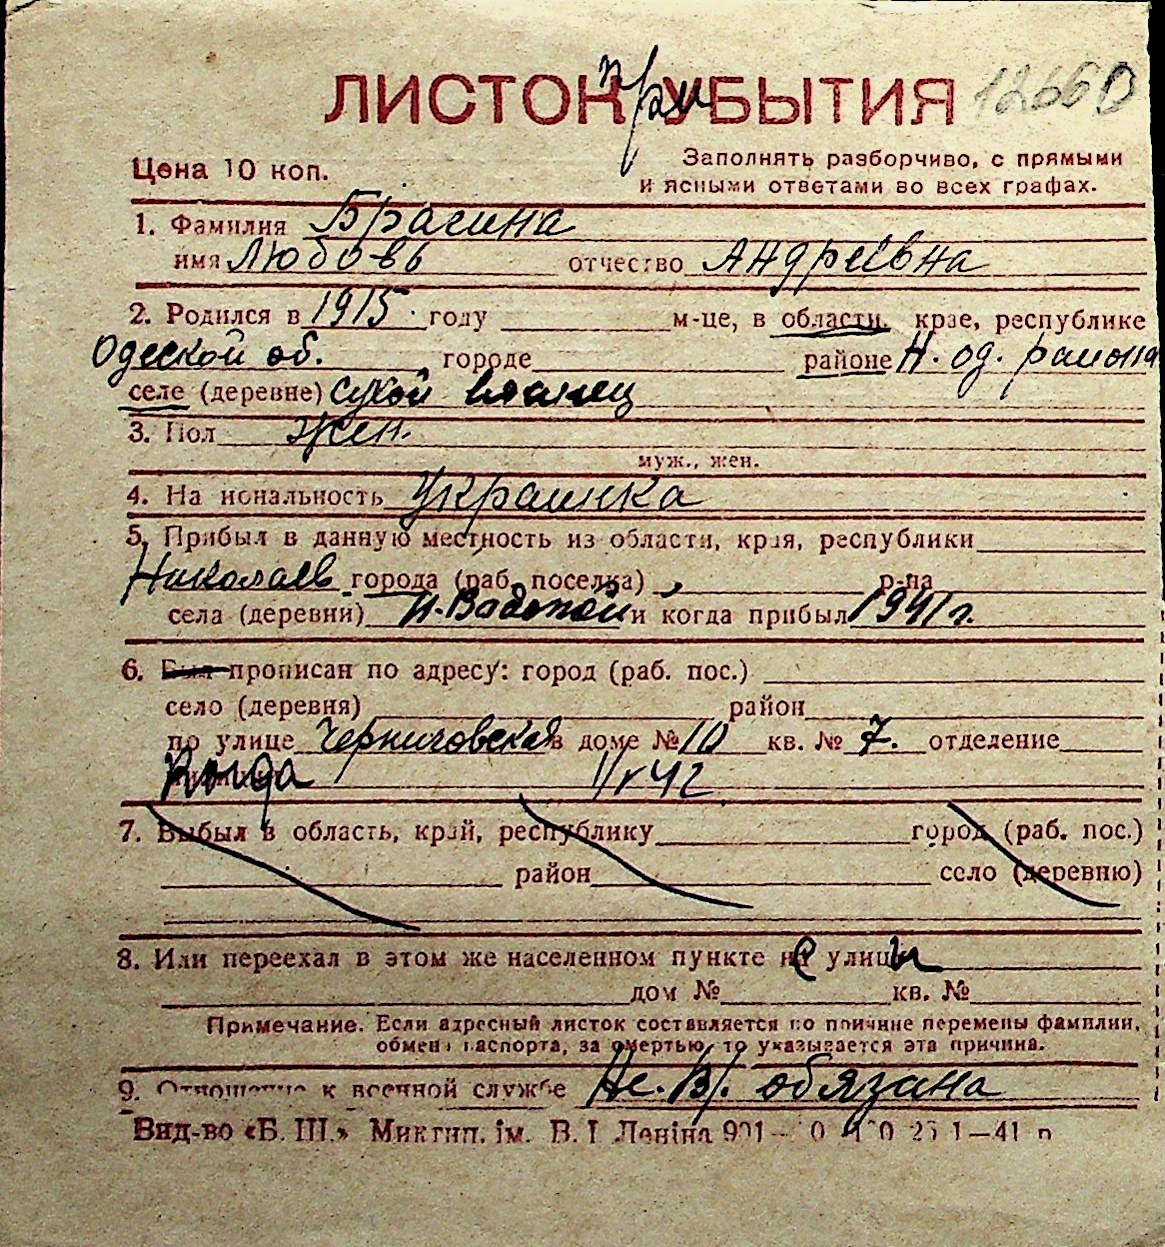 ЛИСТОК при УБЫТИЯ 12660
Цена 10 коп. Заполнять разборчиво, с прямыми
и ясными ответами во всех графах.
1. Фамилия Брагина
имя Любовь отчество Андреевна
2. Родился в 1915 году м-це, в области, крае, республике
Одеской об. городе районе Н. од. района
селе (деревне) Сухой
3. Пол жен.
муж., жен.
4. Национальность Украинка
5. Прибыл в данную местность из области, края, республики
Николаев города (раб. поселка) р-на
села (деревни) и когда прибыл 1941 г.
6. Был прописан по адресу: город (раб. пос.)
село (деревня) район
по улице Черниговская в доме № 10 кв. № 7. отделение
когда 42
7. Выбыл в область, край, республику город (раб. пос.)
район село (деревню)
8. Или переехал в этом же населенном пункте не улицы
дом № кв. №
Примечание. Если адресный листок составляется по причине перемены фамилии,
обмена паспорта, за смертью, то указывается эта причина.
9. Отношение к военной службе Не. В/. обязана
Вид-во «Б. Ш.» Миктип. ім. В. І. Леніна